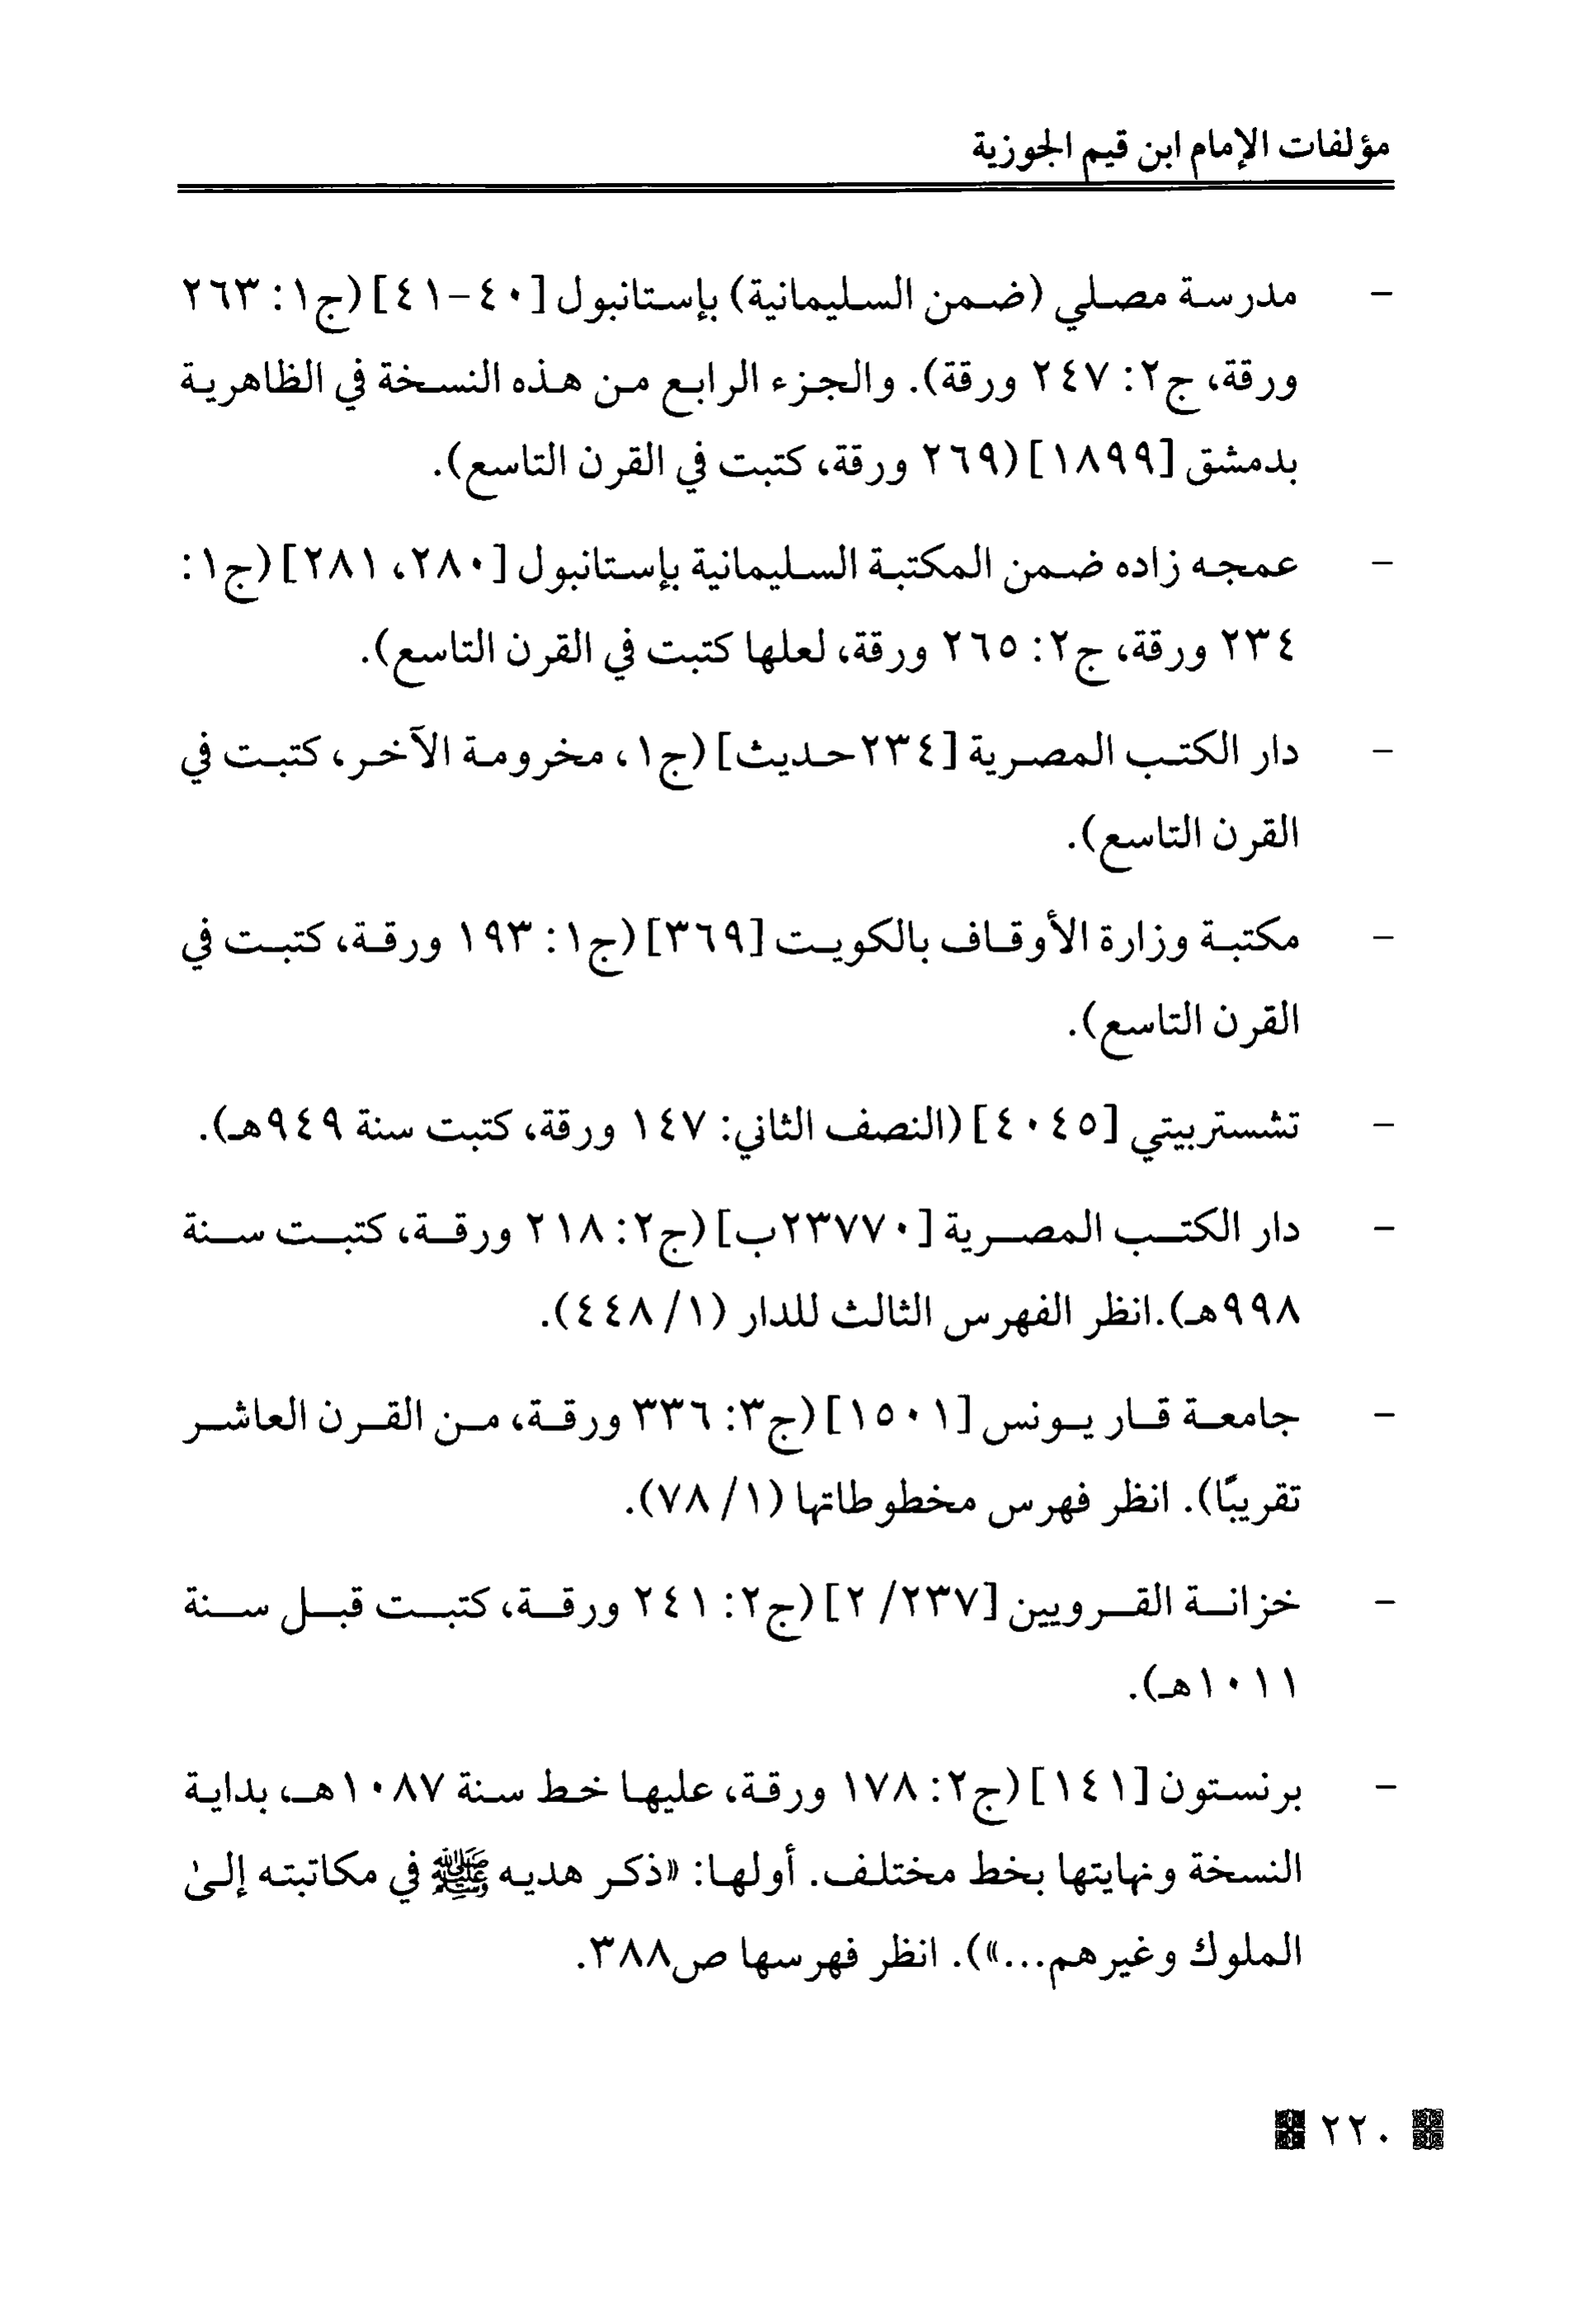 مؤلفات الإمام ابن قيم الجوزية
- مدرسة مصلي (ضمن السليمانية) بإستانبول [٤٠-٤١] (ج١: ٢٦٣
ورقة، ج٢: ٢٤٧ ورقة). والجزء الرابع من هذه النسخة في الظاهرية
بدمشق [١٨٩٩] (٢٦٩ ورقة، كتبت في القرن التاسع).
- عمجه زاده ضمن المكتبة السليمانية بإستانبول [٢٨٠، ٢٨١] (ج١:
٢٣٤ ورقة، ج٢: ٢٦٥ ورقة، لعلها كتبت في القرن التاسع).
- دار الكتب المصرية [٢٣٤حديث] (ج١، مخرومة الآخر، كتبت في
القرن التاسع).
- مكتبة وزارة الأوقاف بالكويت [٣٦٩] (ج١: ١٩٣ ورقة، كتبت في
القرن التاسع).
- تشستربيتي [٤٠٤٥] (النصف الثاني: ١٤٧ ورقة، كتبت سنة ٩٤٩هـ).
- دار الكتب المصرية [٢٣٧٧٠ب] (ج٢: ٢١٨ ورقة، كتبت سنة
٩٩٨هـ).انظر الفهرس الثالث للدار (١/ ٤٤٨).
- جامعة قار يونس [١٥٠١] (ج٣: ٣٣٦ ورقة، من القرن العاشر
تقريبًا). انظر فهرس مخطوطاتها (١/ ٧٨).
- خزانة القرويين [٢٣٧/ ٢] (ج٢: ٢٤١ ورقة، كتبت قبل سنة
١٠١١هـ).
- برنستون [١٤١] (ج٢: ١٧٨ ورقة، عليها خط سنة ١٠٨٧هـ، بداية
النسخة ونهايتها بخط مختلف. أولها: «ذكر هديه ﷺ في مكاتبته إلىٰ
الملوك وغيرهم...»). انظر فهرسها ص٣٨٨.
٢٢٠